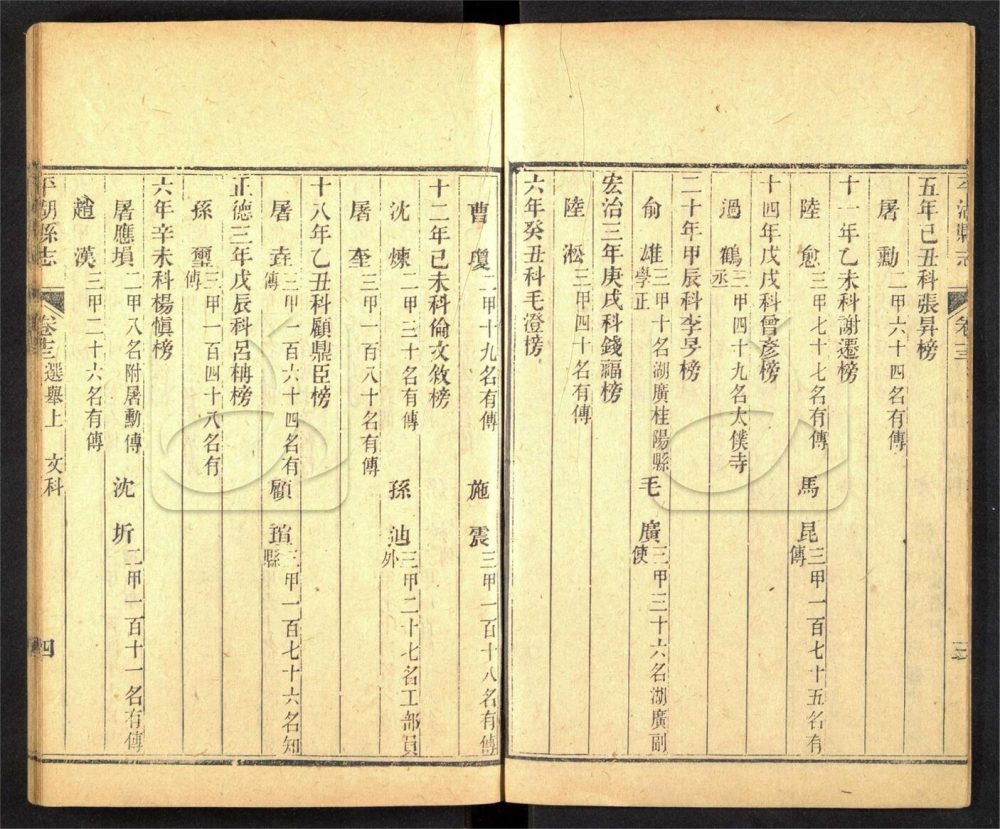 平湖縣志 卷十三 三
五年己丑科張昇榜
屠勳 二甲六十四名有傳
十一年乙未科謝遷榜
陸愈 三甲七十七名有傳 馬昆 三甲一百七十五名有傳
十四年戊戌科曾彥榜
過鶴 三甲四十九名太僕寺丞
二十年甲辰科李旻榜
俞雄 三甲十名湖廣桂陽縣學正 毛廣 三甲三十六名湖廣副使
宏治三年庚戌科錢福榜
陸淞 三甲四十名有傳
六年癸丑科毛澄榜
曹瓊 二甲十九名有傳 施震 三甲一百十八名有傳
十二年己未科倫文敘榜
沈煉 二甲三十名有傳 孫迪 三甲二十七名工部員外
屠奎 三甲一百八十名有傳
十八年乙丑科顧鼎臣榜
屠垚 三甲一百六十四名有傳 顧 三甲一百七十六名知縣
正德三年戊辰科呂柟榜
孫璽 三甲一百四十八名有傳
六年辛未科楊慎榜
屠應塤 二甲八名附屠勳傳 沈圻 二甲一百十一名有傳
趙漢 三甲二十六名有傳
平湖縣志 卷十三 選舉上 文科 四